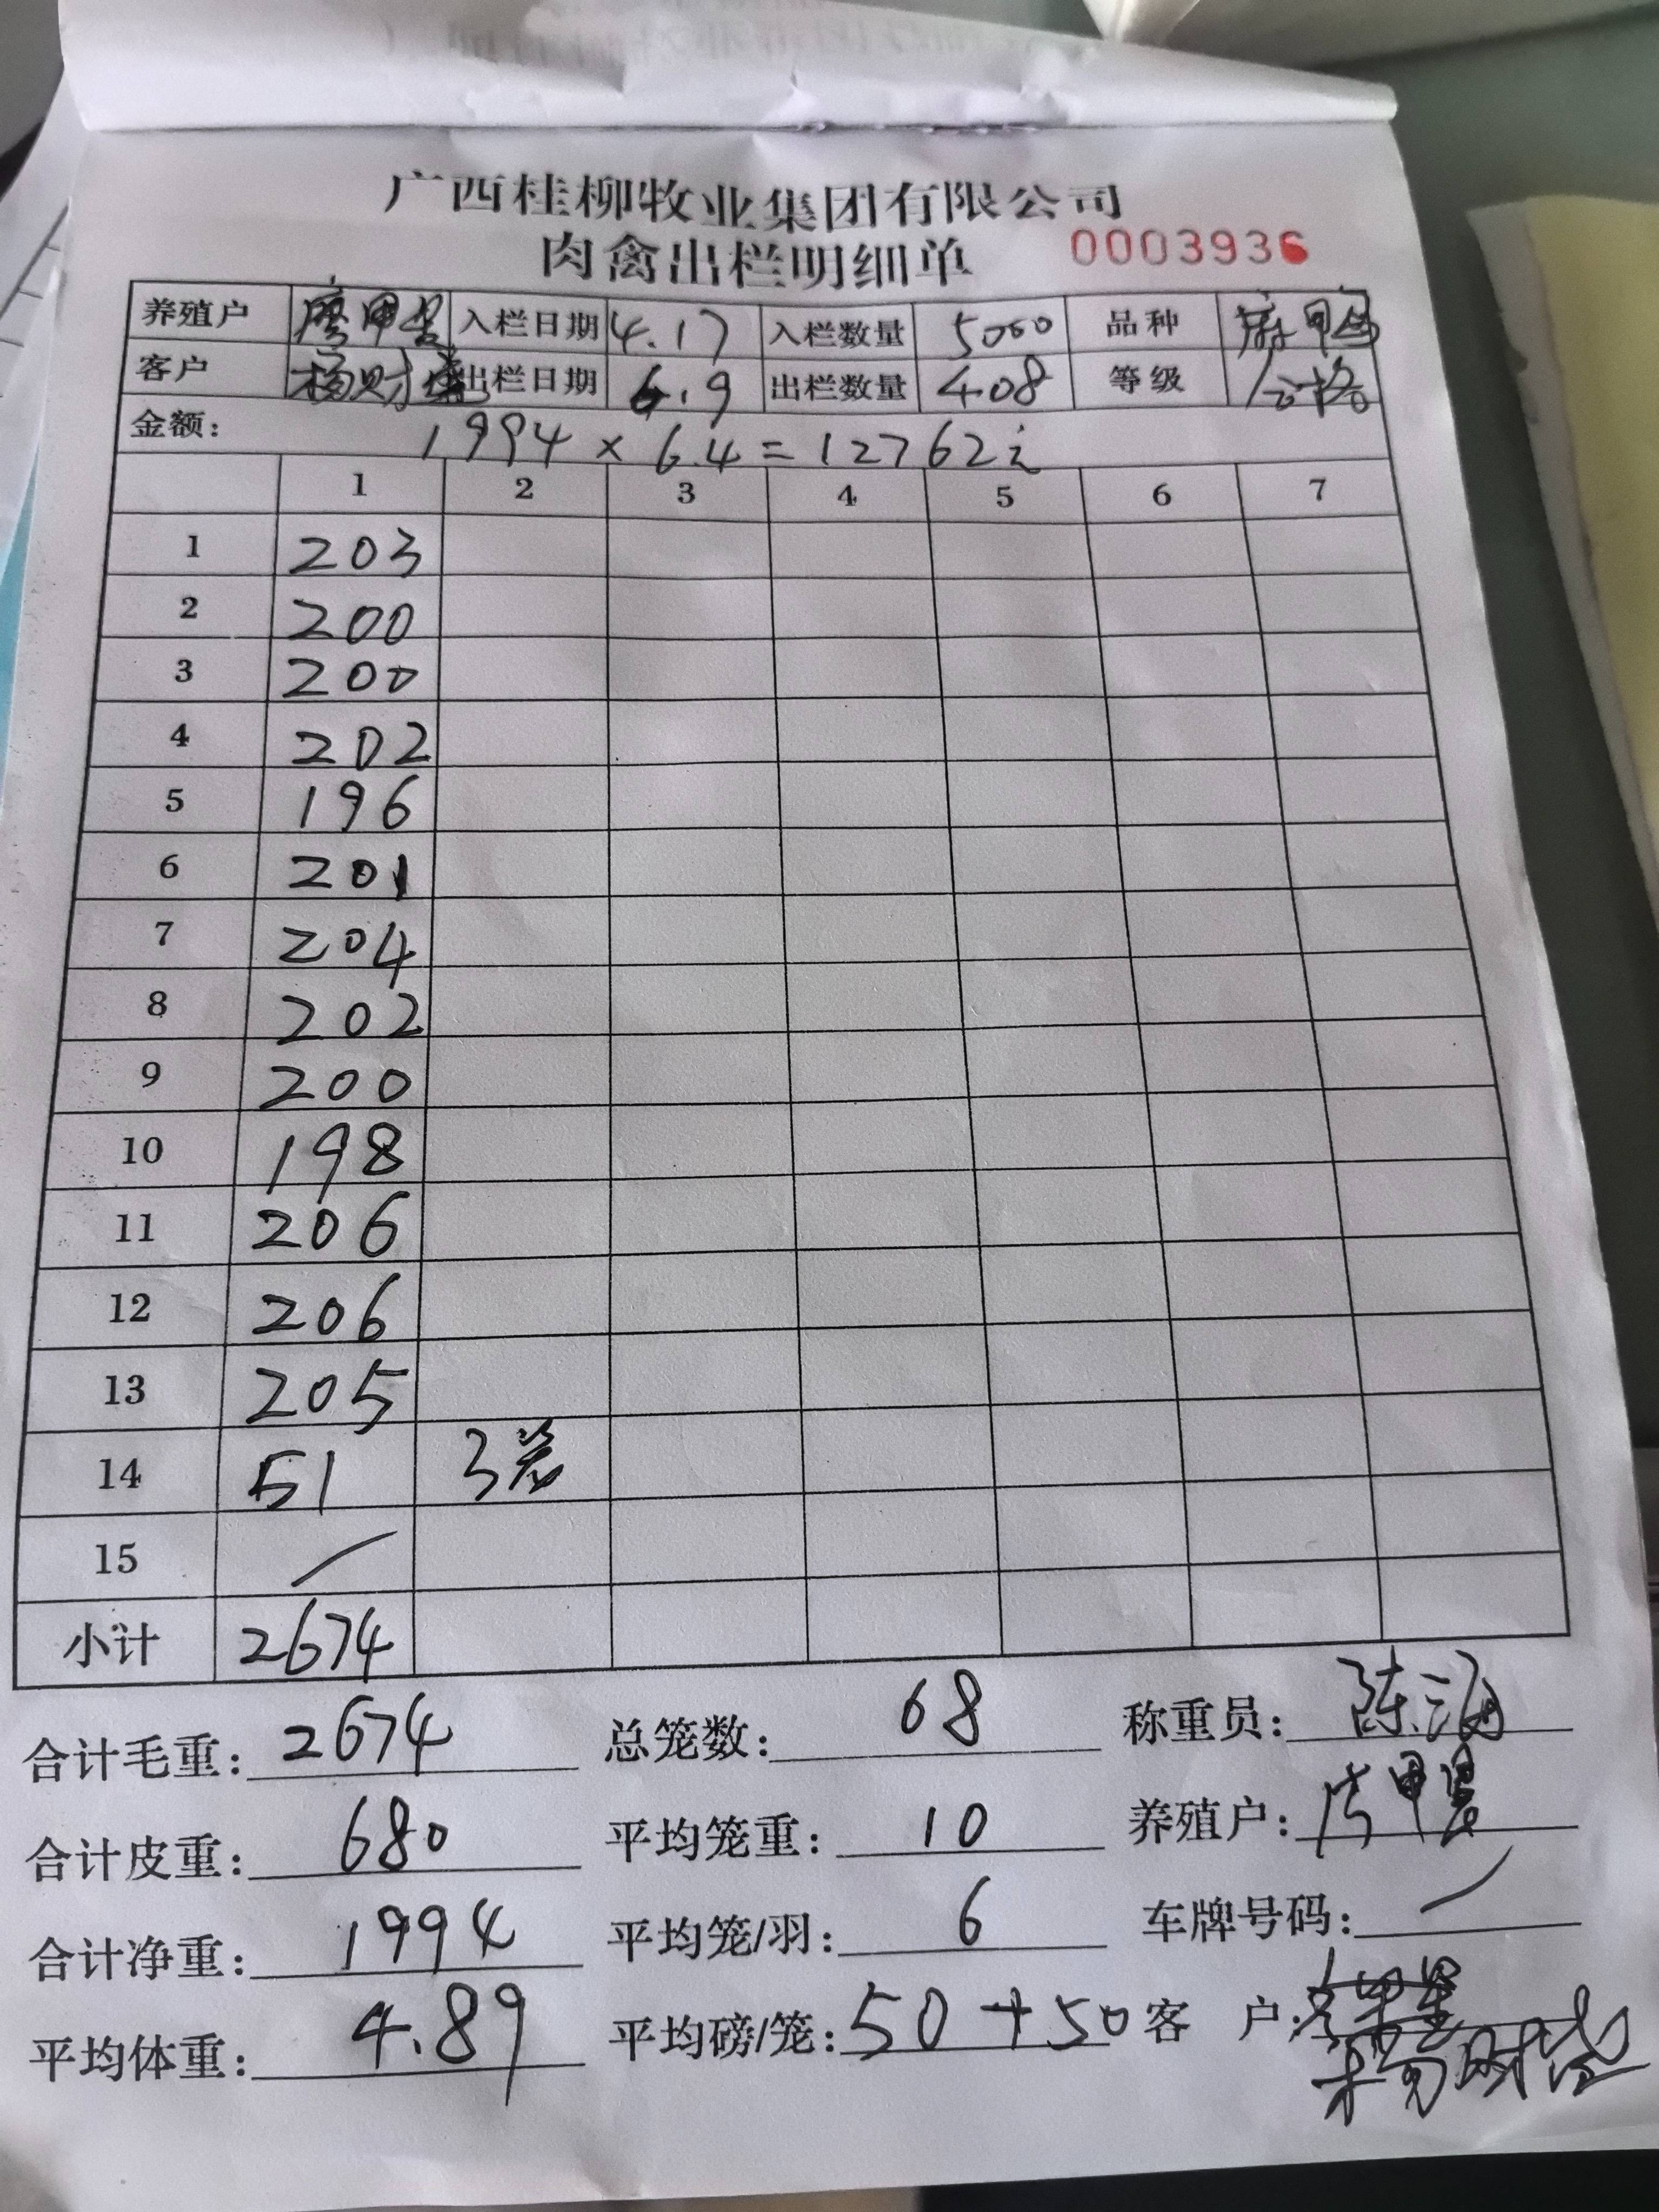 广西桂柳牧业集团有限公司
肉禽出栏明细单 0003936
养殖户 入栏日期 4.17 入栏数量 5000 品种 麻甲鸟
客户 杨财 出栏日期 6.9 出栏数量 408 等级 合格
金额: 1994 × 6.4 = 12762
1 2 3 4 5 6 7
1 203
2 200
3 200
4 202
5 196
6 201
7 204
8 202
9 200
10 198
11 206
12 206
13 205
14 51 3笼
15 /
小计 2674
合计毛重: 2674 总笼数: 68 称重员: 陈海
合计皮重: 680 平均笼重: 10 养殖户:
合计净重: 1994 平均笼/羽: 6 车牌号码: /
平均体重: 4.89 平均磅/笼: 50+50 客 户:
杨财